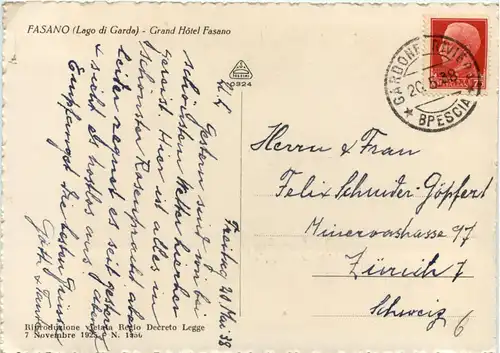 FASANO (Lago di Garda) - Grand Hôtel Fasano
0824
GARDONE RIVIERA
20.5.38
BRESCIA
Freitag 20 Mai 38
Gestern sind wir bei
schönstem Wetter hierher
gereist. Hier ist alles in
schönster Rosenpracht aber
leider regnet es seit gestern abend
& sieht es trostlos aus.
Empfangt die besten Grüsse
Herrn & Frau
Felix Schuster-Göpfert
Minervastrasse 97
Zürich 7
Schweiz
6
Riproduzione vietata Regio Decreto Legge
7 Novembre 1925 - N. 1950